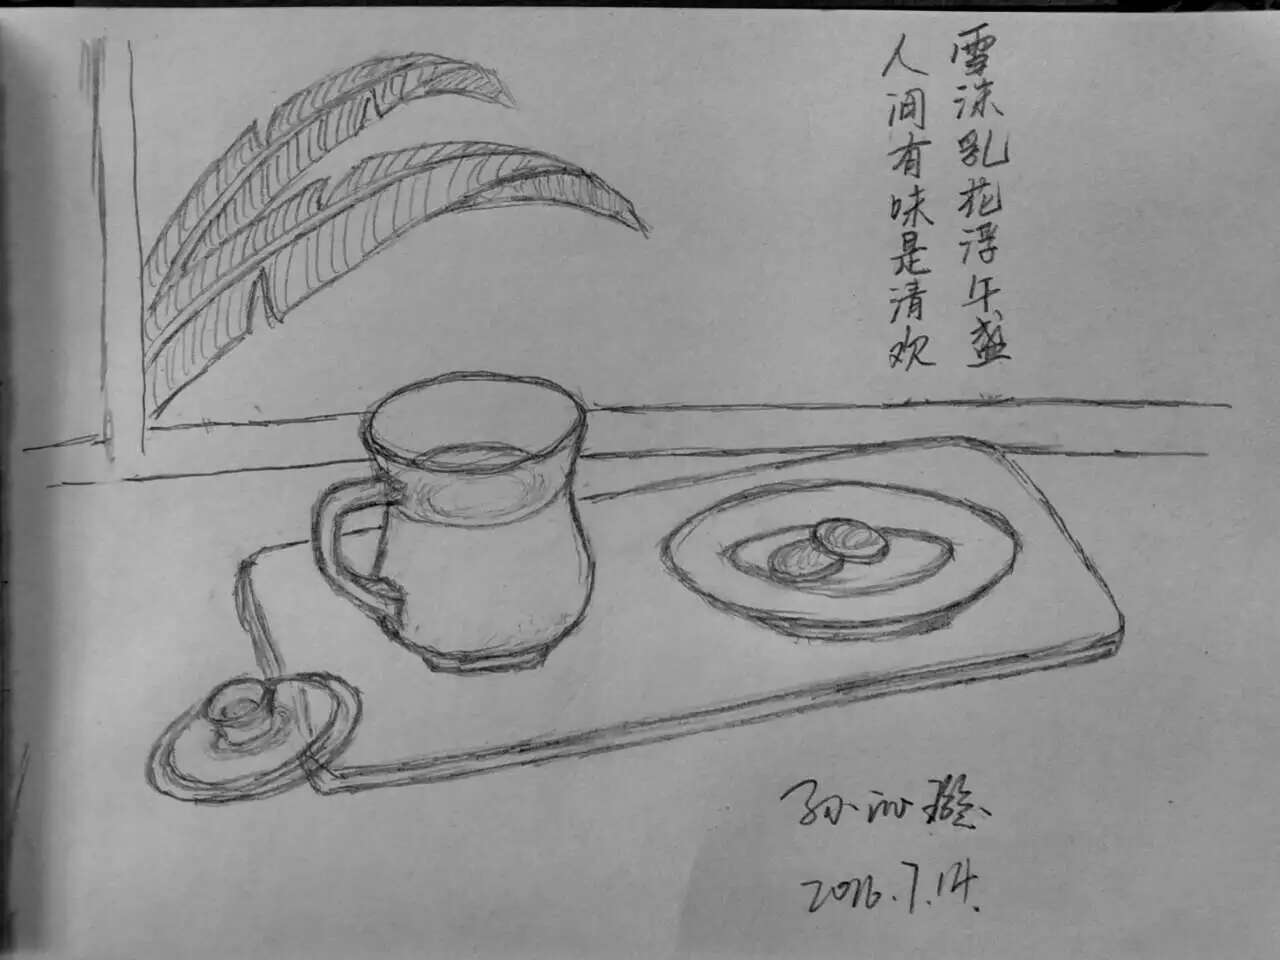 雪沫乳花浮午盏
人间有味是清欢
孙沁璇
2016.7.14.